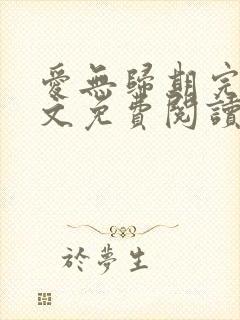 愛無歸期完
文免費閱讀
於夢生